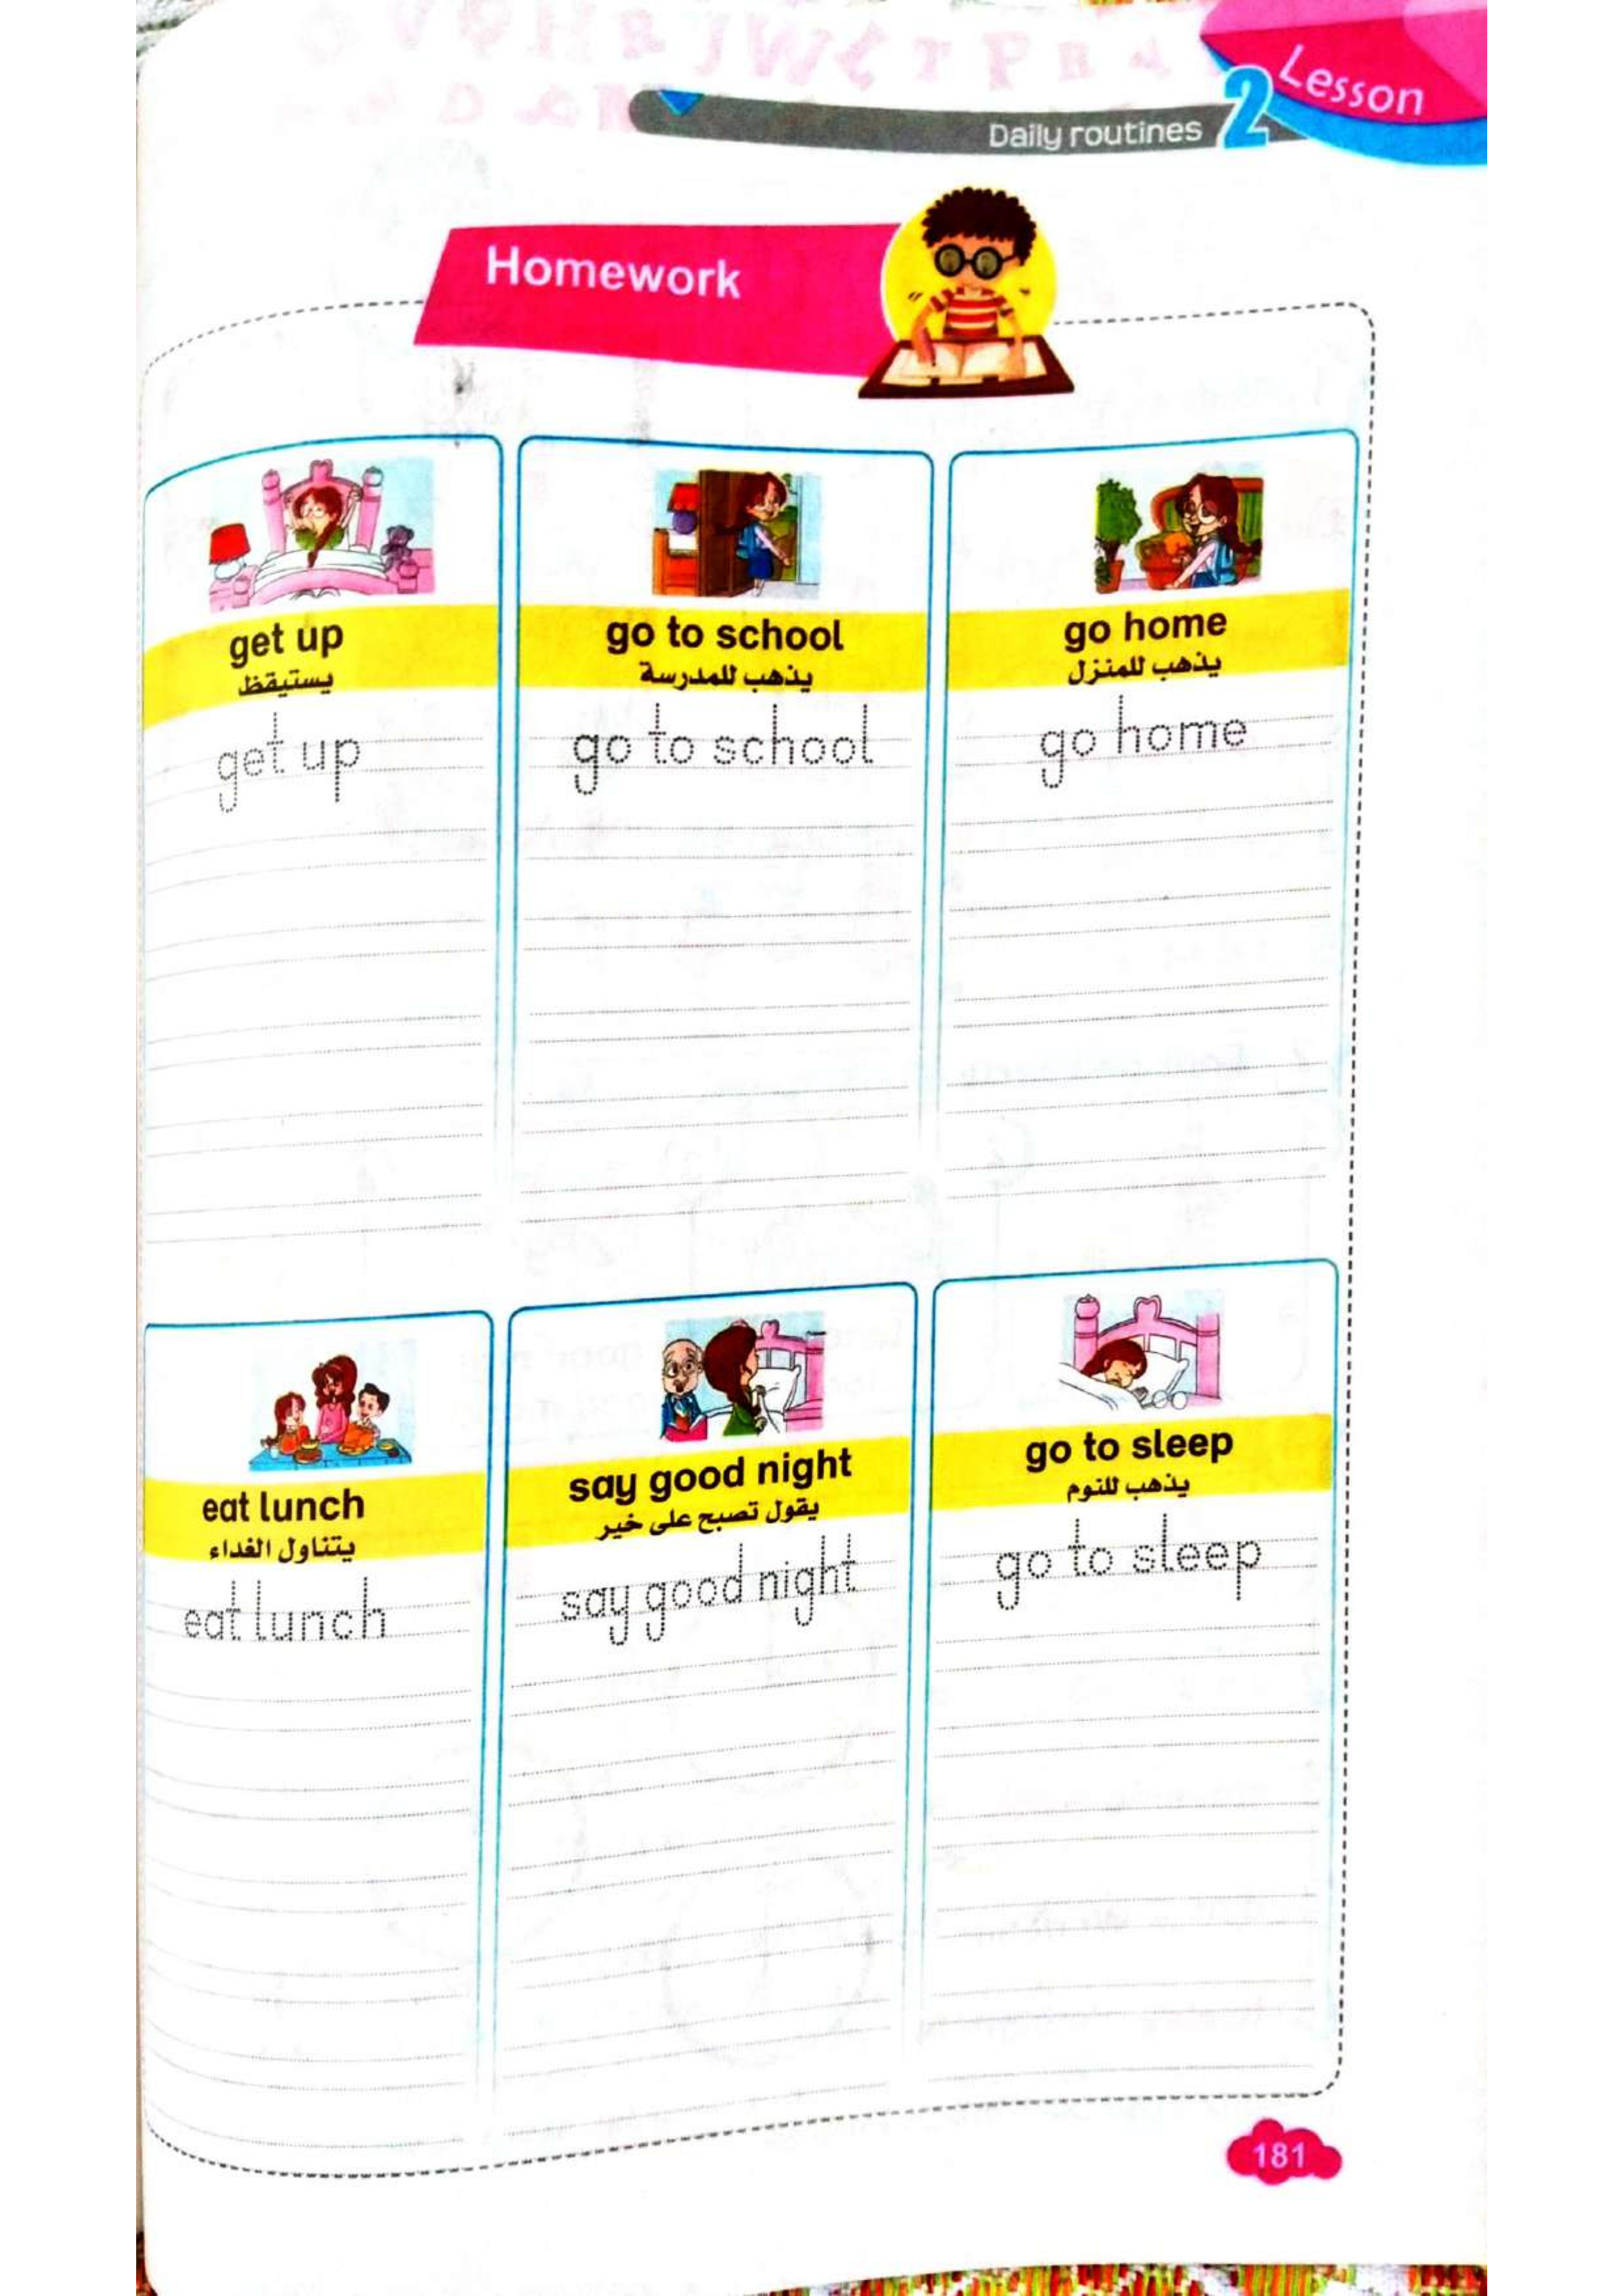 Lesson 2
Daily routines
Homework
get up
يستيقظ
get up
go to school
يذهب للمدرسة
go to school
go home
يذهب للمنزل
go home
eat lunch
يتناول الغداء
eat lunch
say good night
يقول تصبح على خير
say good night
go to sleep
يذهب للنوم
go to sleep
181